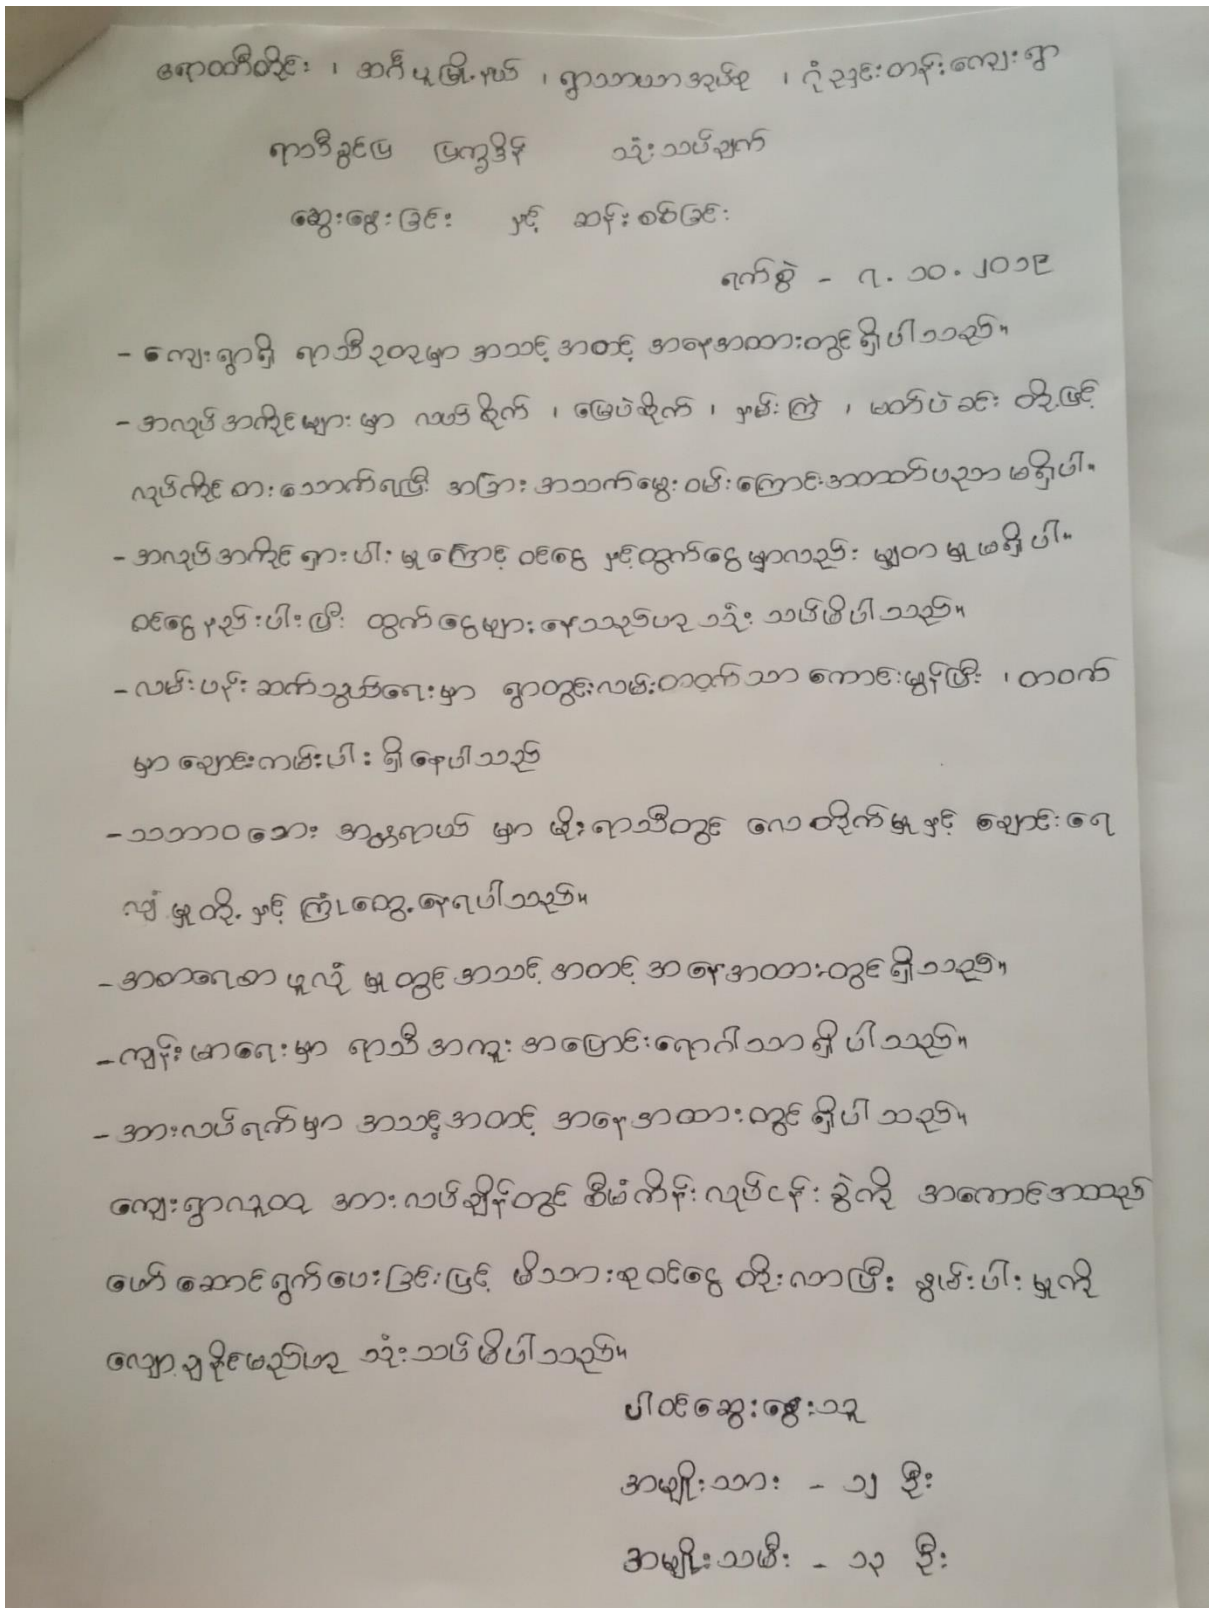 ဧရာဝတီတိုင်း ၊ အင်္ဂပူမြို့နယ် ၊ ရွာသာယာအုပ်စု ၊ ဂုံညှင်းတန်းကျေးရွာ
ရာသီခွင်ပြ ပြက္ခဒိန် သုံးသပ်ချက်
ဆွေးနွေးခြင်း နှင့် ဆန်းစစ်ခြင်း
ရက်စွဲ - ၇.၁၀.၂၀၁၉
- ကျေးရွာရှိ ရာသီဥတုမှာ အသင့်အတင့် အနေအထားတွင်ရှိပါသည်။
- အလုပ်အကိုင်များမှာ လယ်စိုက် ၊ မြေပဲစိုက် ၊ နှမ်းကြဲ ၊ မတ်ပဲခင်း တို့ဖြင့်
လုပ်ကိုင်စားသောက်ရပြီး အခြားအသက်မွေးဝမ်းကြောင်းအတတ်ပညာမရှိပါ။
- အလုပ်အကိုင်ရှားပါးမှုကြောင့် ဝင်ငွေ နှင့်ထွက်ငွေမှာလည်း မျှတမှုမရှိပါ။
ဝင်ငွေနည်းပါးပြီး ထွက်ငွေများနေသည်ဟု သုံးသပ်မိပါသည်။
- လမ်းပန်းဆက်သွယ်ရေးမှာ ရွာတွင်းလမ်းတဝက်သာ ကောင်းမွန်ပြီး ၊ တဝက်
မှာ ချောင်းကမ်းပါး ရှိနေပါသည်
- သဘာဝဘေး အန္တရာယ် မှာ မိုးရာသီတွင် လေတိုက်မှုနှင့် ချောင်းရေ
လျှံမှုတို့နှင့် ကြုံတွေ့နေရပါသည်။
- အစာရေစာ ဖူလုံမှုတွင်အသင့်အတင့်အနေအထားတွင်ရှိသည်။
- ကျန်းမာရေးမှာ ရာသီအကူးအပြောင်းရောဂါသာရှိပါသည်။
- အားလပ်ရက်မှာ အသင့်အတင့် အနေအထားတွင်ရှိပါသည်။
ကျေးရွာလူထု အားလပ်ချိန်တွင် စီမံကိန်းလုပ်ငန်းခွဲကို အကောင်အထည်
ဖော်ဆောင်ရွက်ပေးခြင်းဖြင့် မိသားစုဝင်ငွေ တိုးလာပြီး နွမ်းပါးမှုကို
လျော့ချနိုင်မည်ဟု သုံးသပ်မိပါသည်။
ပါဝင်ဆွေးနွေးသူ
အမျိုးသား - ၁၂ ဦး
အမျိုးသမီး - ၁၃ ဦး